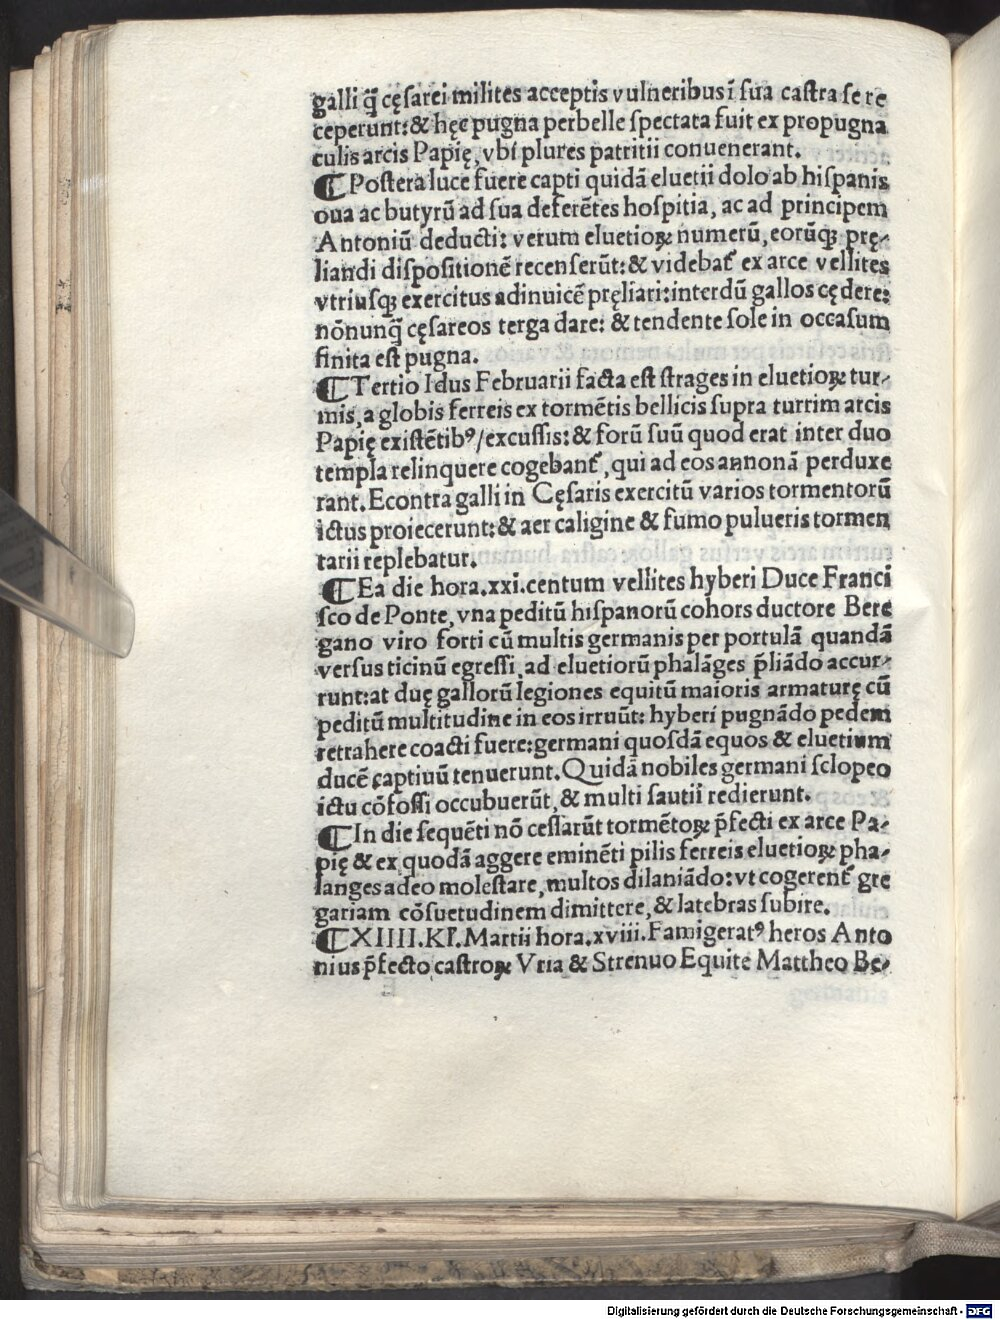 galli q̄ȝ cęſarei milites acceptis vulneribus ī ſua caſtra ſe re
ceperunt: & hęc pugna perbelle ſpectata fuit ex propugna
culis arcis Papię, vbi plures patritii conuenerant.
¶ Poſtera luce fuere capti quidā eluetii dolo ab hiſpanis
oua ac butyrū ad ſua deferētes hoſpitia, ac ad principem
Antoniū deducti: verum eluetioꝝ numerū, eorūqȝ prę⸗
liandi diſpoſitionē recenſerūt: & videbat᷑ ex arce vellites
vtriuſqȝ exercitus adinuicē pręliari: interdū gallos cędere:
nōnunq̄ȝ cęſareos terga dare: & tendente ſole in occaſum
finita eſt pugna.
¶ Tertio Idus Februarii facta eſt ſtrages in eluetioꝝ tur⸗
mis, a globis ferreis ex tormētis bellicis ſupra turrim arcis
Papię exiſtētibꝰ/excuſſis: & forū ſuū quod erat inter duo
templa relinquere cogebant᷑, qui ad eos annonā perduxe
rant. Econtra galli in Cęſaris exercitū varios tormentorū
ictus proiecerunt: & aer caligine & fumo pulueris tormen
tarii replebatur.
¶ Ea die hora.xxi.centum vellites hyberi Duce Franci
ſco de Ponte, vna peditū hiſpanorū cohors ductore Bere
gano viro forti cū multis germanis per portulā quandā
verſus ticinū egreſſi, ad eluetiorū phalāges p̄liādo accur⸗
runt: at duę gallorū legiones equitū maioris armaturę cū
peditū multitudine in eos irruūt: hyberi pugnādo pedem
retrahere coacti fuere: germani quoſdā equos & eluetium
ducē captiuū tenuerunt. Quidā nobiles germani ſclopeo
ictu cōfoſſi occubuerūt, & multi ſautii redierunt.
¶ In die ſequēti nō ceſſarūt tormētoꝝ p̄fecti ex arce Pa⸗
pię & ex quodā aggere eminēti pilis ferreis eluetioꝝ pha⸗
langes adeo moleſtare, multos dilaniādo: vt cogerent᷑ gre
gariam cōſuetudinem dimittere, & latebras ſubire.
¶ XIIII. Kl̓. Martii hora.xviii. Famigeratꝰ heros Anto
nius p̄fecto caſtroꝝ Vria & Strenuo Equite Mattheo Be⸗
Digitalisierung gefördert durch die Deutsche Forschungsgemeinschaft - DFG